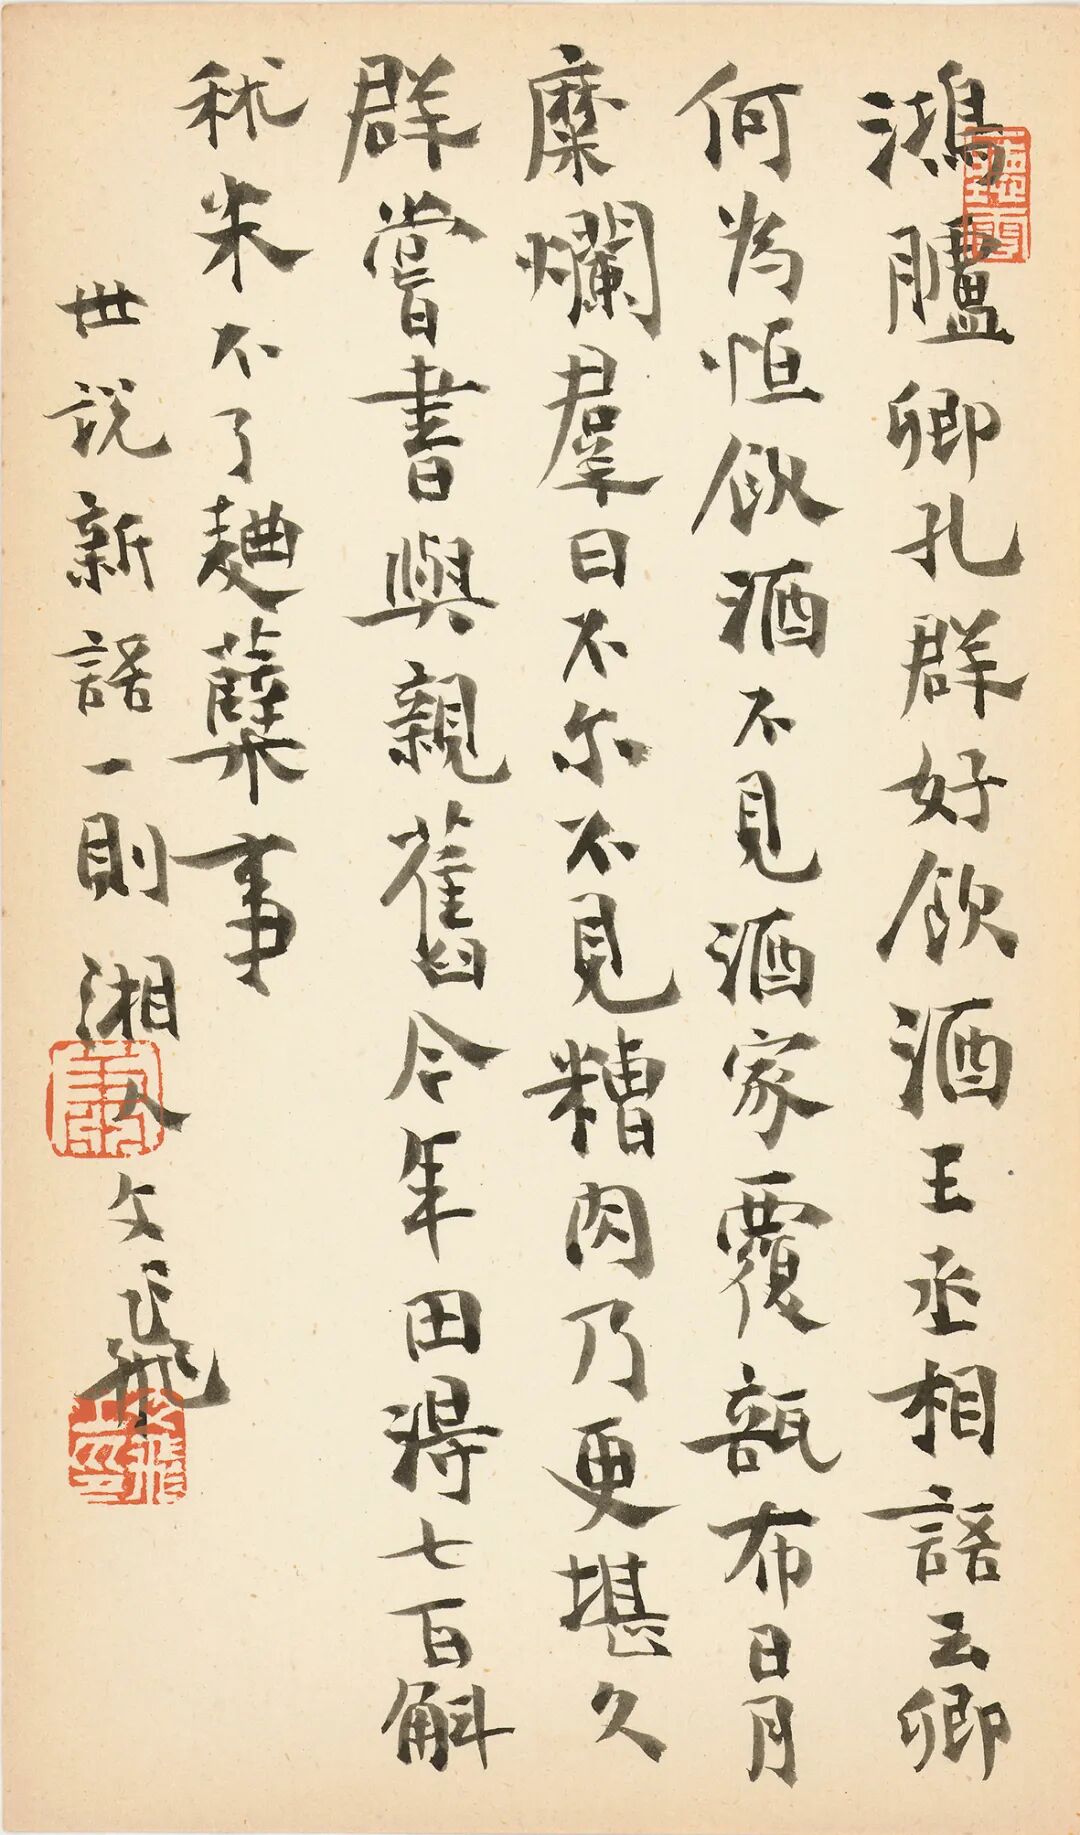 鴻臚卿孔群好飲酒王丞相語云卿
何為恒飲酒不見酒家覆瓿布日月
糜爛羣曰不尔不見糟肉乃更堪久
群嘗書與親舊今年田得七百斛
秫米不了麯蘖事
世説新語一則湘人文飛